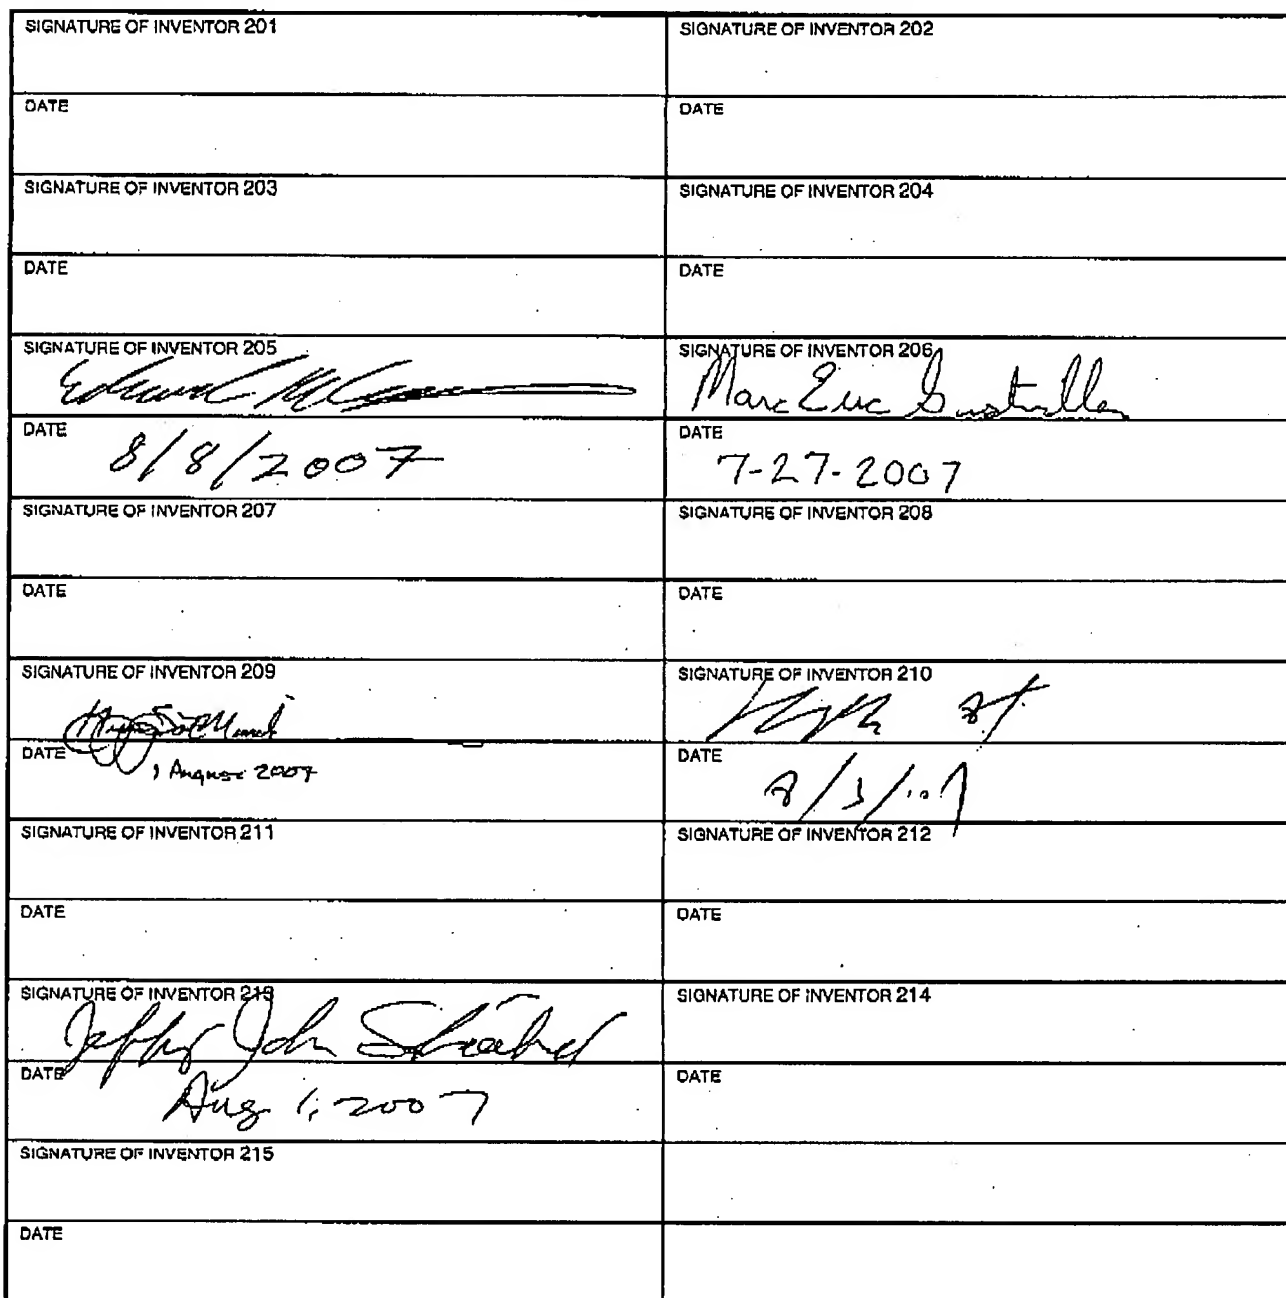 SIGNATURE OF INVENTOR 201
SIGNATURE OF INVENTOR 202
DATE
DATE
SIGNATURE OF INVENTOR 203
SIGNATURE OF INVENTOR 204
DATE
DATE
SIGNATURE OF INVENTOR 205
Edward
SIGNATURE OF INVENTOR 206
Marc Eric
DATE
8/8/2007
DATE
7-27-2007
SIGNATURE OF INVENTOR 207
SIGNATURE OF INVENTOR 208
DATE
DATE
SIGNATURE OF INVENTOR 209
SIGNATURE OF INVENTOR 210
DATE
1 August 2007
DATE
SIGNATURE OF INVENTOR 211
SIGNATURE OF INVENTOR 212
DATE
DATE
SIGNATURE OF INVENTOR 213
Jeffry John
SIGNATURE OF INVENTOR 214
DATE
Aug 1, 2007
DATE
SIGNATURE OF INVENTOR 215
DATE